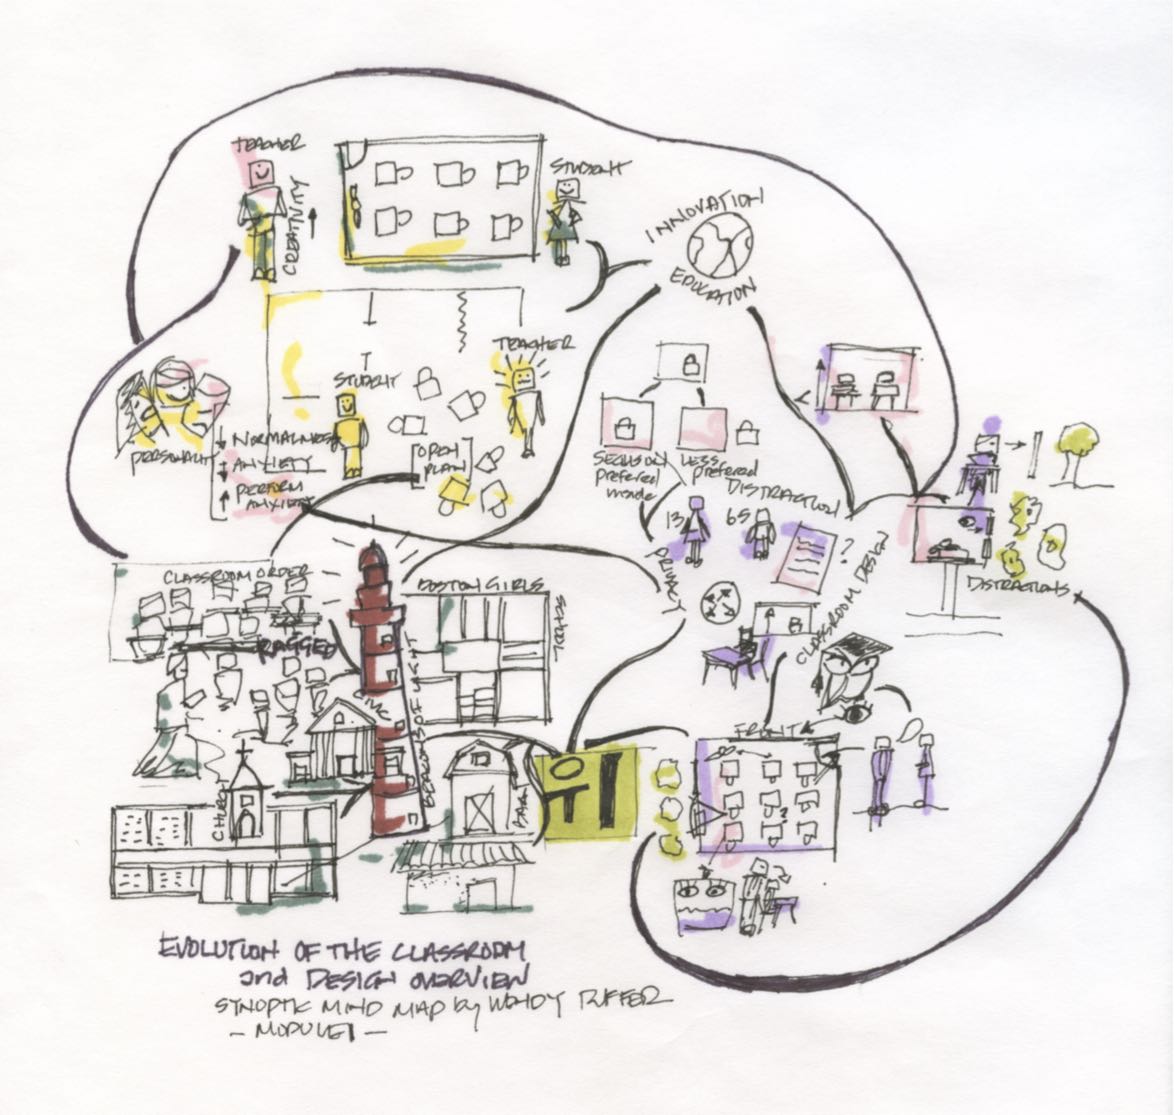 TEACHER
CREATIVITY
STUDENT
INNOVATION
EDUCATION
TEACHER
STUDENT
PERSONALITY
NORMALNESS
ANXIETY
PERFORM
ANXIETY
OPEN
PLAN
SECLUSION
preferred
inside
LESS
preferred
DISTRACTION
13
65
?
PRIVACY
CLASSROOM DESIGN
DISTRACTIONS
CLASSROOM ORDER
RAGGED
BOSTON GIRLS
BEACONS OF LIGHT
CHURCH
BARN
FRONT
?
EVOLUTION OF THE CLASSROOM
and DESIGN OVERVIEW
SYNOPTIC MIND MAP by WENDY PUFFER
- MODULE 1 -